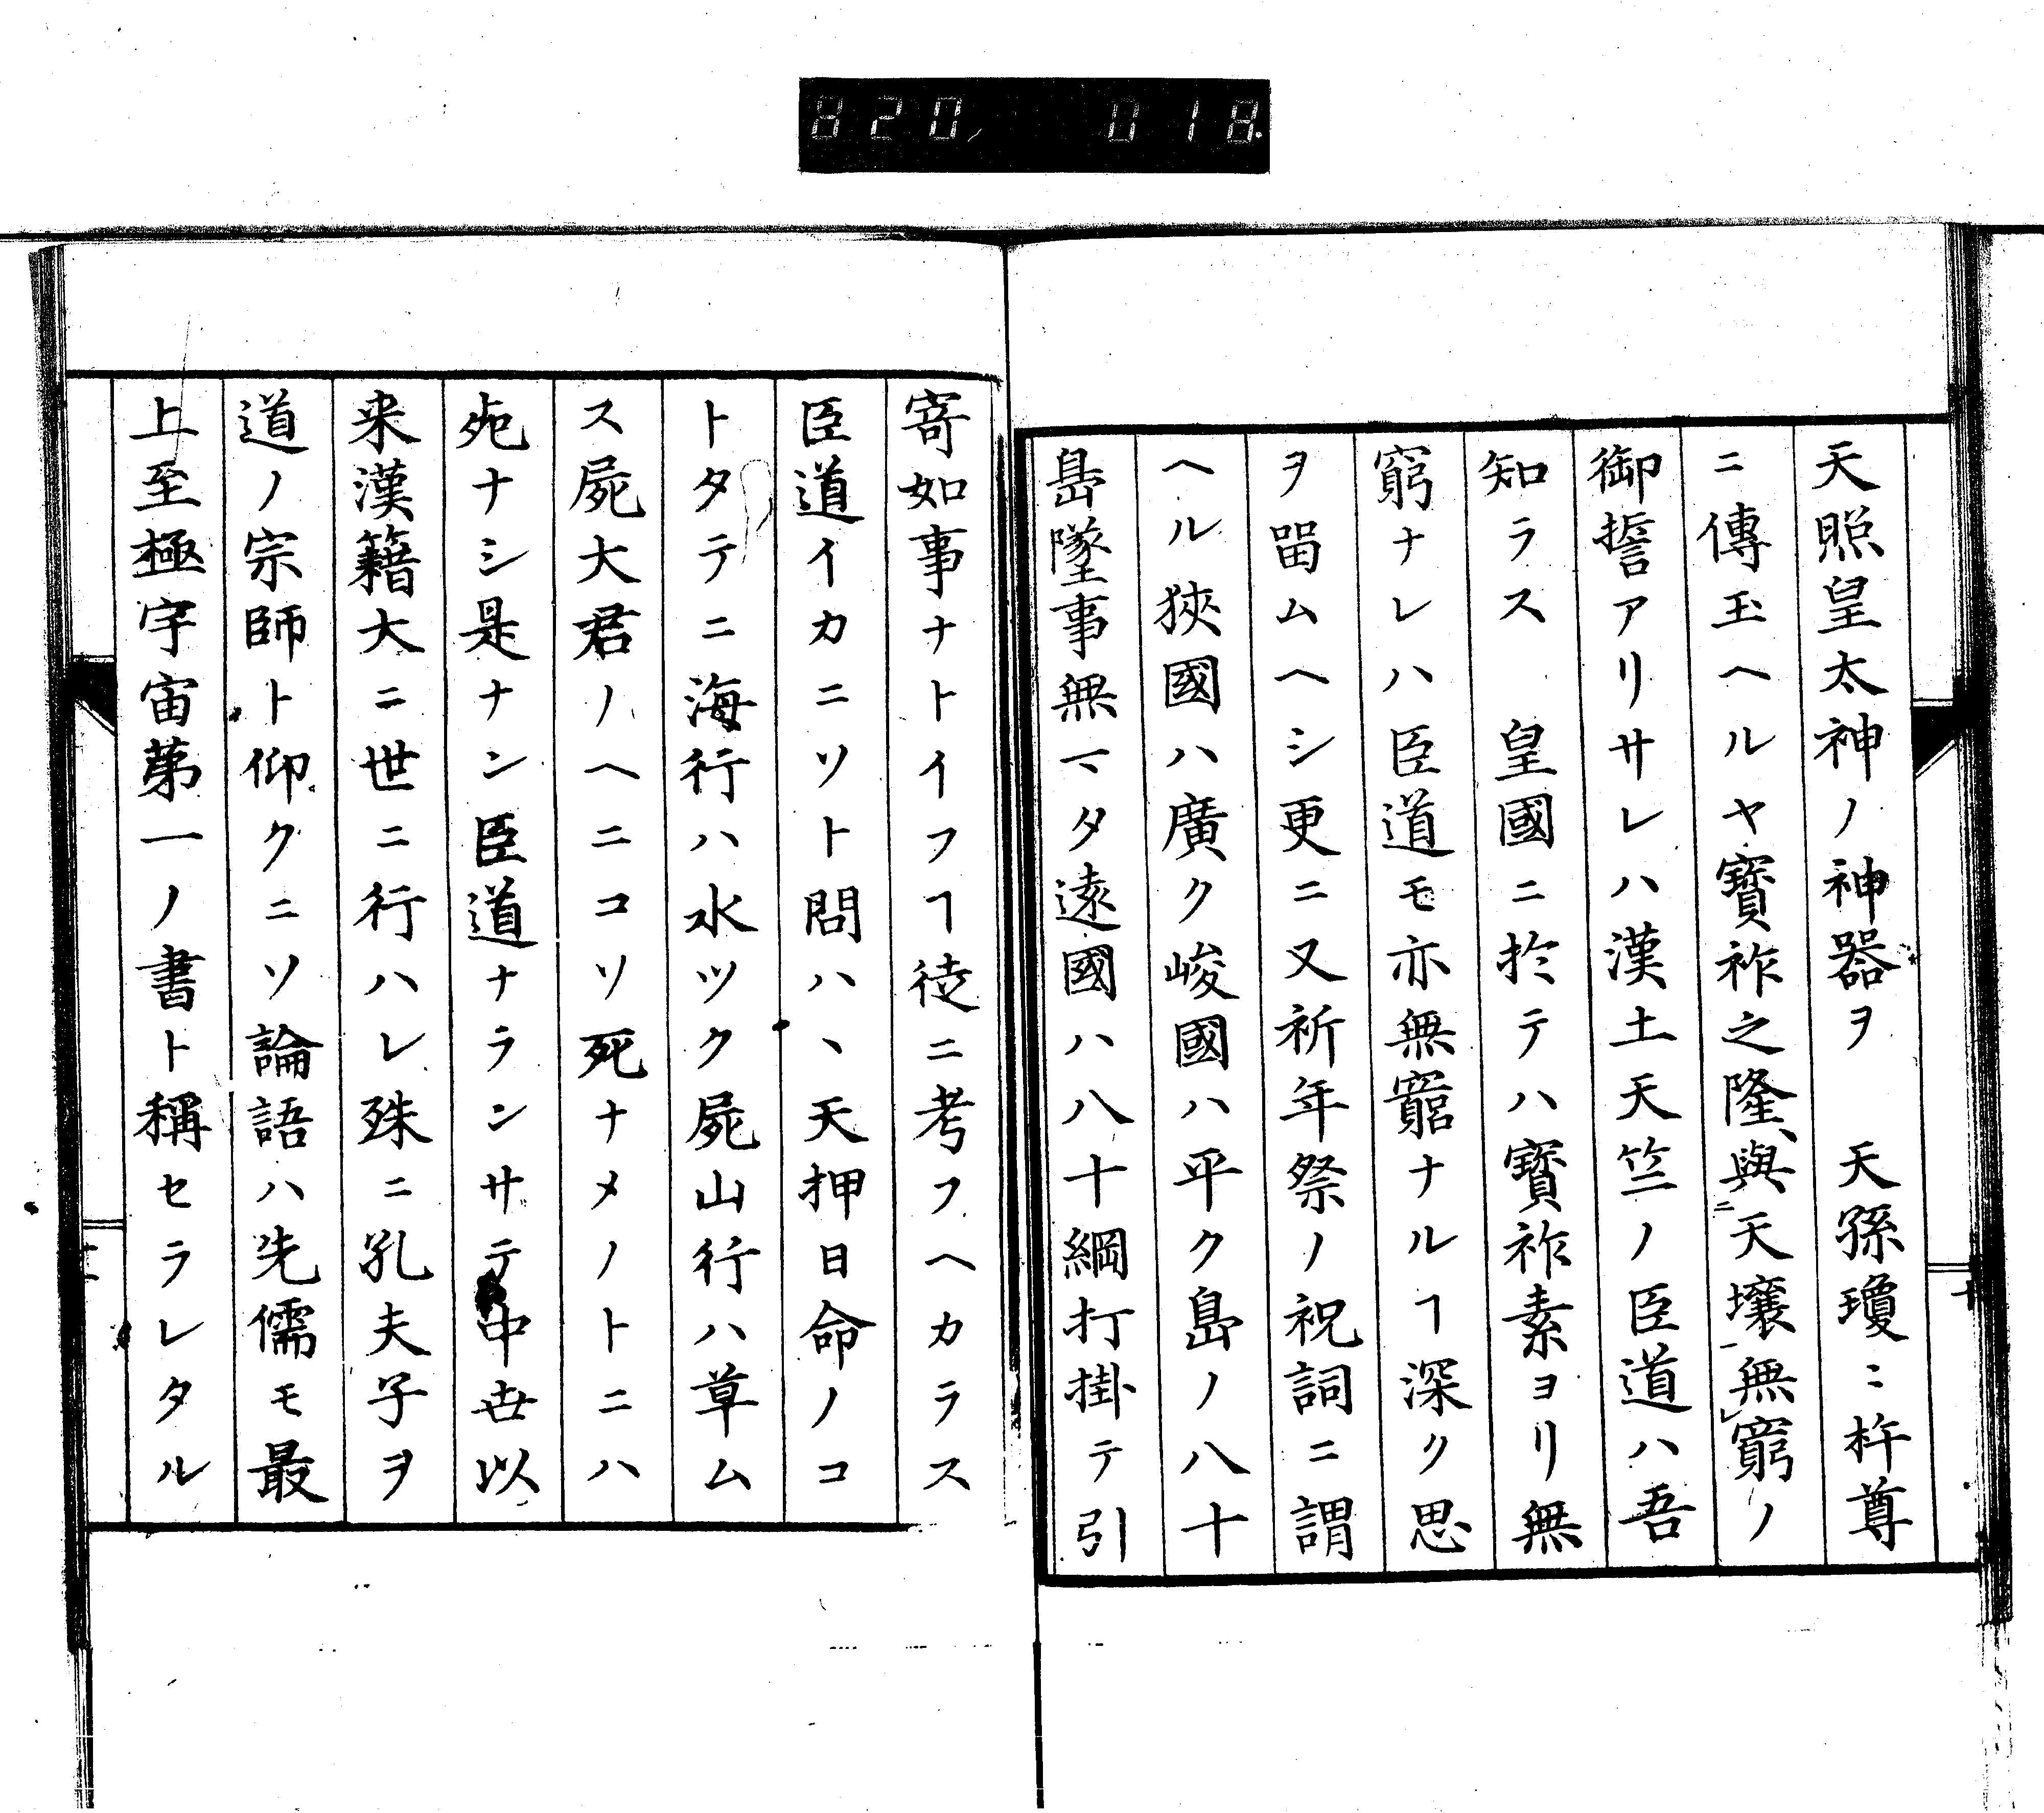 820, 018.
天照皇太神ノ神器ヲ　天孫瓊〻杵尊
ニ傳玉ヘルヤ寳祚之隆、與ニ天壤一無レ窮ノ
御誓アリサレハ漢土天竺ノ臣道ハ吾
知ラス　皇國ニ於テハ寳祚素ヨリ無
窮ナレハ臣道モ亦無窮ナルヿ深ク思
ヲ畄ムヘシ更ニ又祈年祭ノ祝詞ニ謂
ヘル狹國ハ廣ク峻國ハ平ク島ノ八十
島墜事無マタ遠國ハ八十綱打掛テ引
十
寄如事ナトイフヿ徒ニ考フヘカラス
臣道イカニソト問ハヽ天押日命ノコ
トタテニ海行ハ水ツク屍山行ハ草ム
ス屍大君ノヘニコソ死ナメノトニハ
死ナシ是ナン臣道ナランサテ中世以
来漢籍大ニ世ニ行ハレ殊ニ孔夫子ヲ
道ノ宗師ト仰クニソ論語ハ先儒モ最
上至極宇宙苐一ノ書ト稱セラレタル